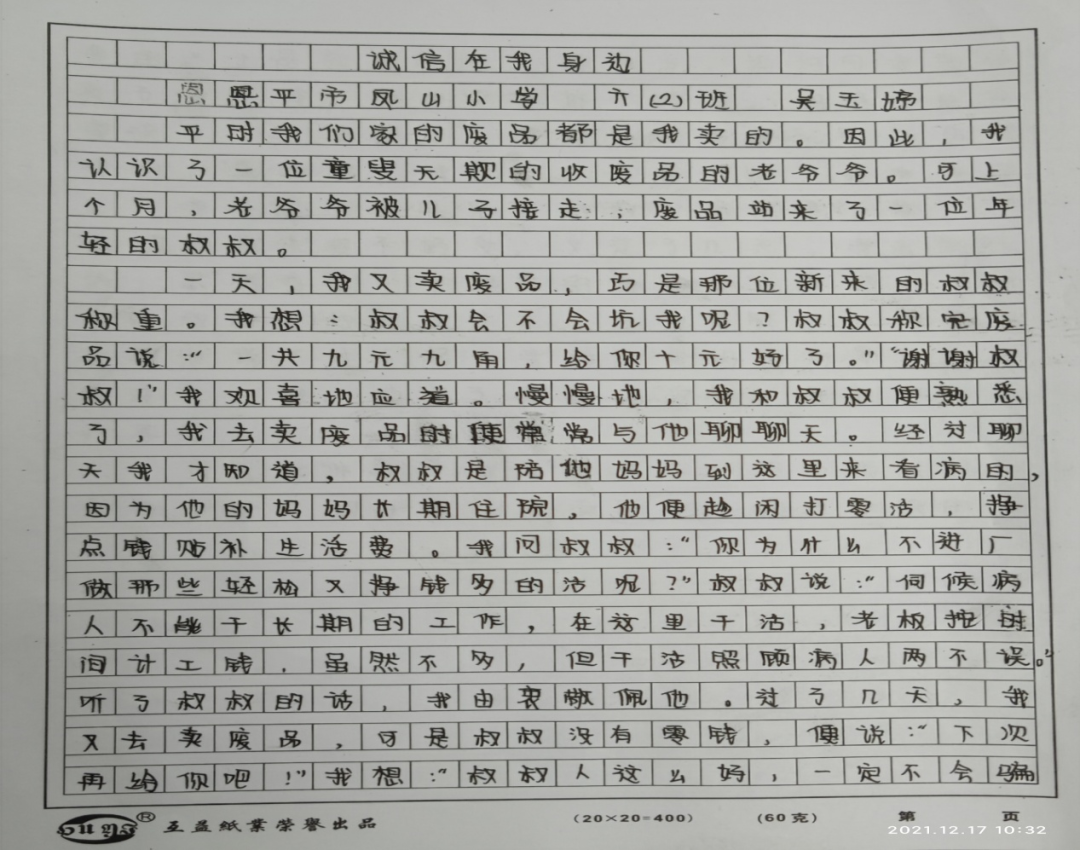 诚信在我身边
恩平市凤山小学 六(2)班 吴玉婷
平时我们家的废品都是我卖的。因此,我
认识了一位童叟无欺的收废品的老爷爷。可上
个月,老爷爷被儿子接走,废品站来了一位年
轻的叔叔。
一天,我又卖废品,巧是那位新来的叔叔
称重。我想:叔叔会不会坑我呢?叔叔称完废
品说:“一共九元九角,给你十元好了。”“谢谢叔
叔!”我欢喜地应道。慢慢地,我和叔叔便熟悉
了,我去卖废品时便常常与他聊聊天。经过聊
天我才知道,叔叔是陪他妈妈到这里来看病的,
因为他的妈妈长期住院,他便趁闲打零活,挣
点钱贴补生活费。我问叔叔:“你为什么不进厂
做那些轻松又挣钱多的活呢?”叔叔说:“伺候病
人不能干长期的工作,在这里干活,老板按时
间计工钱,虽然不多,但干活照顾病人两不误。”
听了叔叔的话,我由衷敬佩他。过了几天,我
又去卖废品,可是叔叔没有零钱,便说:“下次
再给你吧!”我想:“叔叔人这么好,一定不会骗
互益紙業榮譽出品 (20×20=400) (60克) 第 页
2021.12.17 10:32